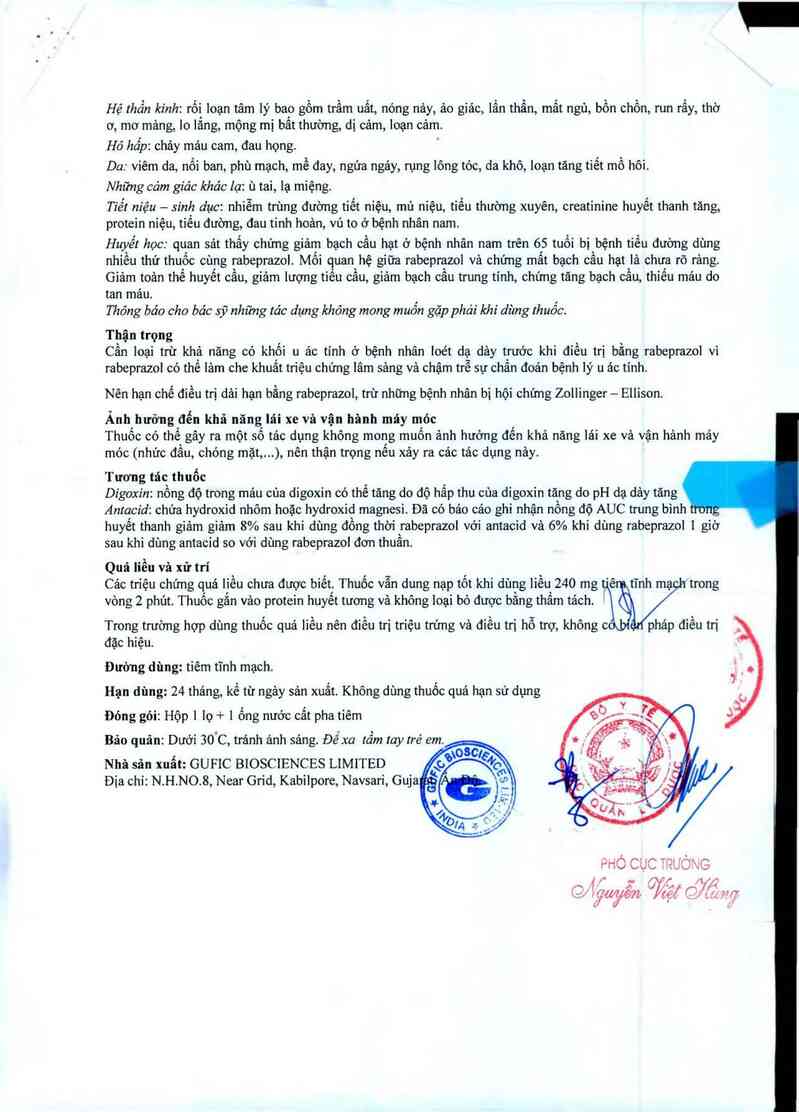 Hệ thần kinh: rối loạn tâm lý bao gồm trầm uất, nóng nảy, ảo giác, lẩn thẩn, mất ngủ, bồn chồn, run rẩy, thờ
ơ, mơ màng, lo lắng, mộng mị bất thường, dị cảm, loạn cảm.
Hô hấp: chảy máu cam, đau họng.
Da: viêm da, nổi ban, phù mạch, mề đay, ngứa ngáy, rụng lông tóc, da khô, loạn tăng tiết mồ hôi.
Những cảm giác khác lạ: ù tai, lạ miệng.
Tiết niệu – sinh dục: nhiễm trùng đường tiết niệu, mủ niệu, tiểu thường xuyên, creatinine huyết thanh tăng,
protein niệu, tiểu đường, đau tinh hoàn, vú to ở bệnh nhân nam.
Huyết học: quan sát thấy chứng giảm bạch cầu hạt ở bệnh nhân nam trên 65 tuổi bị bệnh tiểu đường dùng
nhiều thứ thuốc cùng rabeprazol. Mối quan hệ giữa rabeprazol và chứng mất bạch cầu hạt là chưa rõ ràng.
Giảm toàn thể huyết cầu, giảm lượng tiểu cầu, giảm bạch cầu trung tính, chứng tăng bạch cầu, thiếu máu do
tan máu.
Thông báo cho bác sỹ những tác dụng không mong muốn gặp phải khi dùng thuốc.
Thận trọng
Cần loại trừ khả năng có khối u ác tính ở bệnh nhân loét dạ dày trước khi điều trị bằng rabeprazol vì
rabeprazol có thể làm che khuất triệu chứng lâm sàng và chậm trễ sự chẩn đoán bệnh lý u ác tính.
Nên hạn chế điều trị dài hạn bằng rabeprazol, trừ những bệnh nhân bị hội chứng Zollinger – Ellison.
Ảnh hưởng đến khả năng lái xe và vận hành máy móc
Thuốc có thể gây ra một số tác dụng không mong muốn ảnh hưởng đến khả năng lái xe và vận hành máy
móc (nhức đầu, chóng mặt,...), nên thận trọng nếu xảy ra các tác dụng này.
Tương tác thuốc
Digoxin: nồng độ trong máu của digoxin có thể tăng do độ hấp thu của digoxin tăng do pH dạ dày tăng
Antacid: chứa hydroxid nhôm hoặc hydroxid magnesi. Đã có báo cáo ghi nhận nồng độ AUC trung bình trong
huyết thanh giảm giảm 8% sau khi dùng đồng thời rabeprazol với antacid và 6% khi dùng rabeprazol 1 giờ
sau khi dùng antacid so với dùng rabeprazol đơn thuần.
Quá liều và xử trí
Các triệu chứng quá liều chưa được biết. Thuốc vẫn dung nạp tốt khi dùng liều 240 mg tiêm tĩnh mạch trong
vòng 2 phút. Thuốc gắn vào protein huyết tương và không loại bỏ được bằng thẩm tách.
Trong trường hợp dùng thuốc quá liều nên điều trị triệu trứng và điều trị hỗ trợ, không có biện pháp điều trị
đặc hiệu.
Đường dùng: tiêm tĩnh mạch.
Hạn dùng: 24 tháng, kể từ ngày sản xuất. Không dùng thuốc quá hạn sử dụng
Đóng gói: Hộp 1 lọ + 1 ống nước cất pha tiêm
Bảo quản: Dưới 30°C, tránh ánh sáng. Để xa tầm tay trẻ em.
Nhà sản xuất: GUFIC BIOSCIENCES LIMITED
Địa chỉ: N.H.NO.8, Near Grid, Kabilpore, Navsari, Gujarat, Ấn Độ
GUFIC BIOSCIENCES LIMITED
INDIA
BỘ Y TẾ
CỤC QUẢN LÝ DƯỢC
PHÓ CỤC TRƯỞNG
Nguyễn Việt Hùng